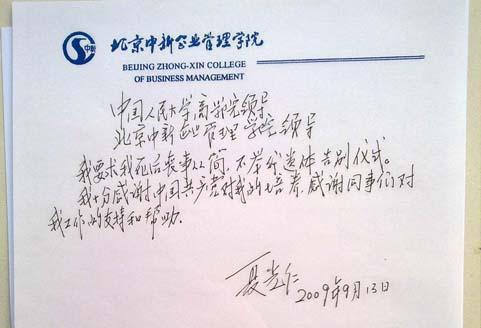 中新
北京中新企业管理学院
BEIJING ZHONG-XIN COLLEGE
OF BUSINESS MANAGEMENT
中国人民大学商学院领导
北京中新企业管理学院领导
我要求我死后丧事从简，不举行遗体告别仪式。
我十分感谢中国共产党对我的培养，感谢同事们对
我工作的支持和帮助。
聂光仁
2009年9月13日